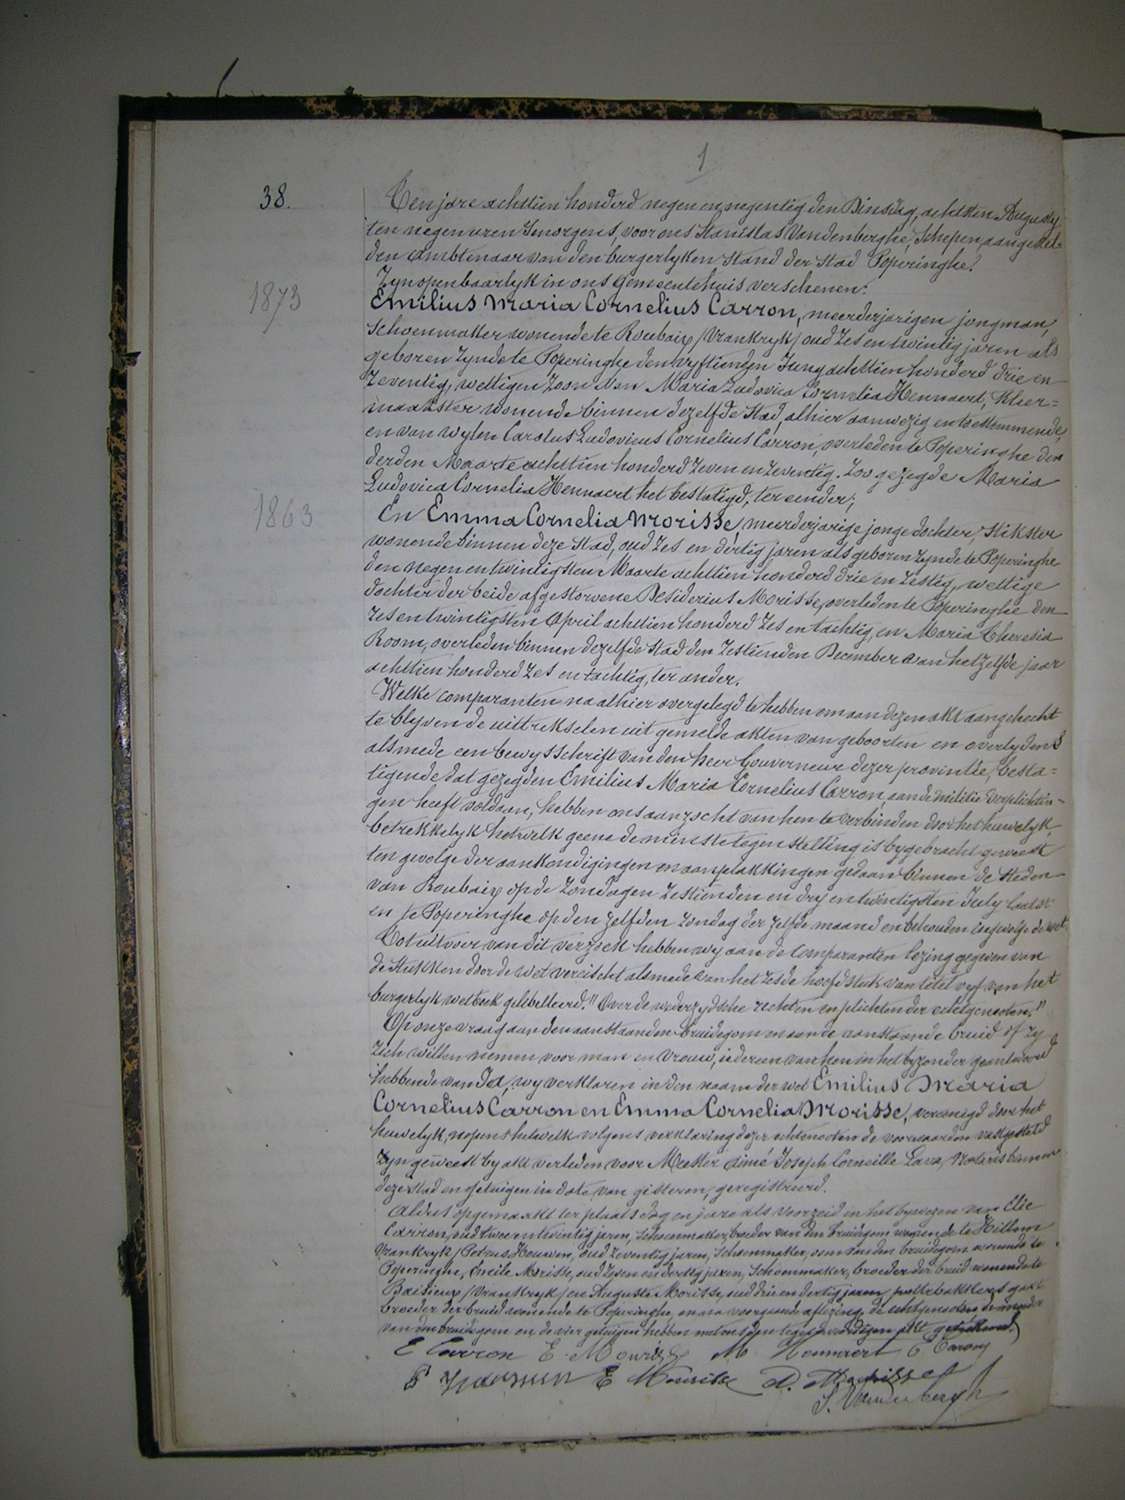 1
38.
Ten jare achttien honderd negen en negentig den Dinsdag, achtsten Augusty
ten negen uren 's morgens, voor ons Stanislas Vandenberghe, Schepen, aangestel-
den ambtenaar van den burgerlyken stand der stad Poperinghe.
Zyn openbaarlyk in ons Gemeentehuis verschenen:
1873
Emilius Maria Cornelius Carron, meerderjarigen jongman,
schoenmaker wonende te Roubaix /Vrankryk/ oud zes en twintig jaren als
geboren zynde te Poperinghe den vyftienden Juny achttien honderd drie en
zeventig, wettigen zoon van Maria Ludovica Cornelia Hennaert, kleer-
maakster wonende binnen dezelfde stad, alhier aanwezig en toestemmende,
en van wylen Carolus Ludovicus Cornelius Carron, overleden te Poperinghe den
derden Maarte achttien honderd zeven en zeventig. Zoo gezegde Maria
Ludovica Cornelia Hennaert het bestatigd, ter eender;
1863
En Emma Cornelia Morisse, meerderjarige jonge dochter, stikster
wonende binnen deze stad, oud zes en dertig jaren als geboren zynde te Poperinghe
den negen en twintigsten Maarte achttien honderd drie en zestig, wettige
dochter der beide afgestorvene Desiderius Morisse, overleden te Poperinghe den
zes en twintigsten April achttien honderd zes en tachtig, en Maria Theresia
Room, overleden binnen dezelfde stad den zestienden December van hetzelfde jaar
achttien honderd zes en tachtig, ter ander.
Welke comparanten na alhier overgelegd te hebben om aan dezen akt aangehecht
te blyven de uittrekselen uit gemelde akten van geboorten en overlydens
alsmede een bewysschrift van den heer Gouverneur dezer provintie, besta-
tigende dat gezegden Emilius Maria Cornelius Carron, aan de militie verplichtin-
gen heeft voldaan, hebben ons aanzocht van hen te verbinden door het huwelyk,
betrekkelyk hetwelk geene de minste tegenstelling is bygebracht geweest
ten gevolge der aankondigingen en aanplakkingen gedaan binnen de steden
van Roubaix op de zondagen zestienden en dry en twintigsten July laatst
en te Poperinghe op den zelfden zondag der zelfde maand en behouden ingevolge de wet.
Tot uitvoer van dit verzoek hebben wy aan de comparanten lezing gegeven van
de stukken door de wet vereischt alsmede van het zesde hoofdstuk van titel vyf van het
burgerlyk wetboek gelibelleerd "Over de wederzydsche rechten en plichten der echtgenooten."
Op onze vraag aan den aanstaanden bruidegom en aan de aanstaande bruid of zy
zich willen nemen voor man en vrouw, iedereen van hen in het byzonder geantwoord
hebbende van Ja, wy verklaren in den naam der wet Emilius Maria
Cornelius Carron en Emma Cornelia Morisse, vereenigd door het
huwelyk, nopens hetwelk volgens verklaring dezer echtenooten de voorwaarden vastgesteld
zyn geweest by akt verleden voor Meester Aimé Joseph Corneille Lava, Notaris binnen
deze stad en getuigen in date van gisteren, geregistreerd.
Aldus opgemaakt ter plaats dag en jare als voorzeid in het bywezen van Elie
Carron, oud twee en twintig jaren, schoenmaker, broeder van den bruidegom wonende te Killem
/Vrankryk/ Petrus oud zeventig jaren, schoenmaker, oom van den bruidegom wonende te
Poperinghe, Emile Morisse, oud zeven en dertig jaren, schoenmaker, broeder der bruid wonende te
Baisieux /Vrankryk/ en Auguste Morisse, oud drie en dertig jaren,
broeder der bruid wonende te Poperinghe, en na voorgaande aflezing, de echtgenooten de moeder
van den bruidegom en de vier getuigen hebben met ons dezen tegenwoordigen akt geteekend.
E Carron E. Morisse M Hennaert E Carron
P E Morisse A. Morisse
S. Vandenberghe